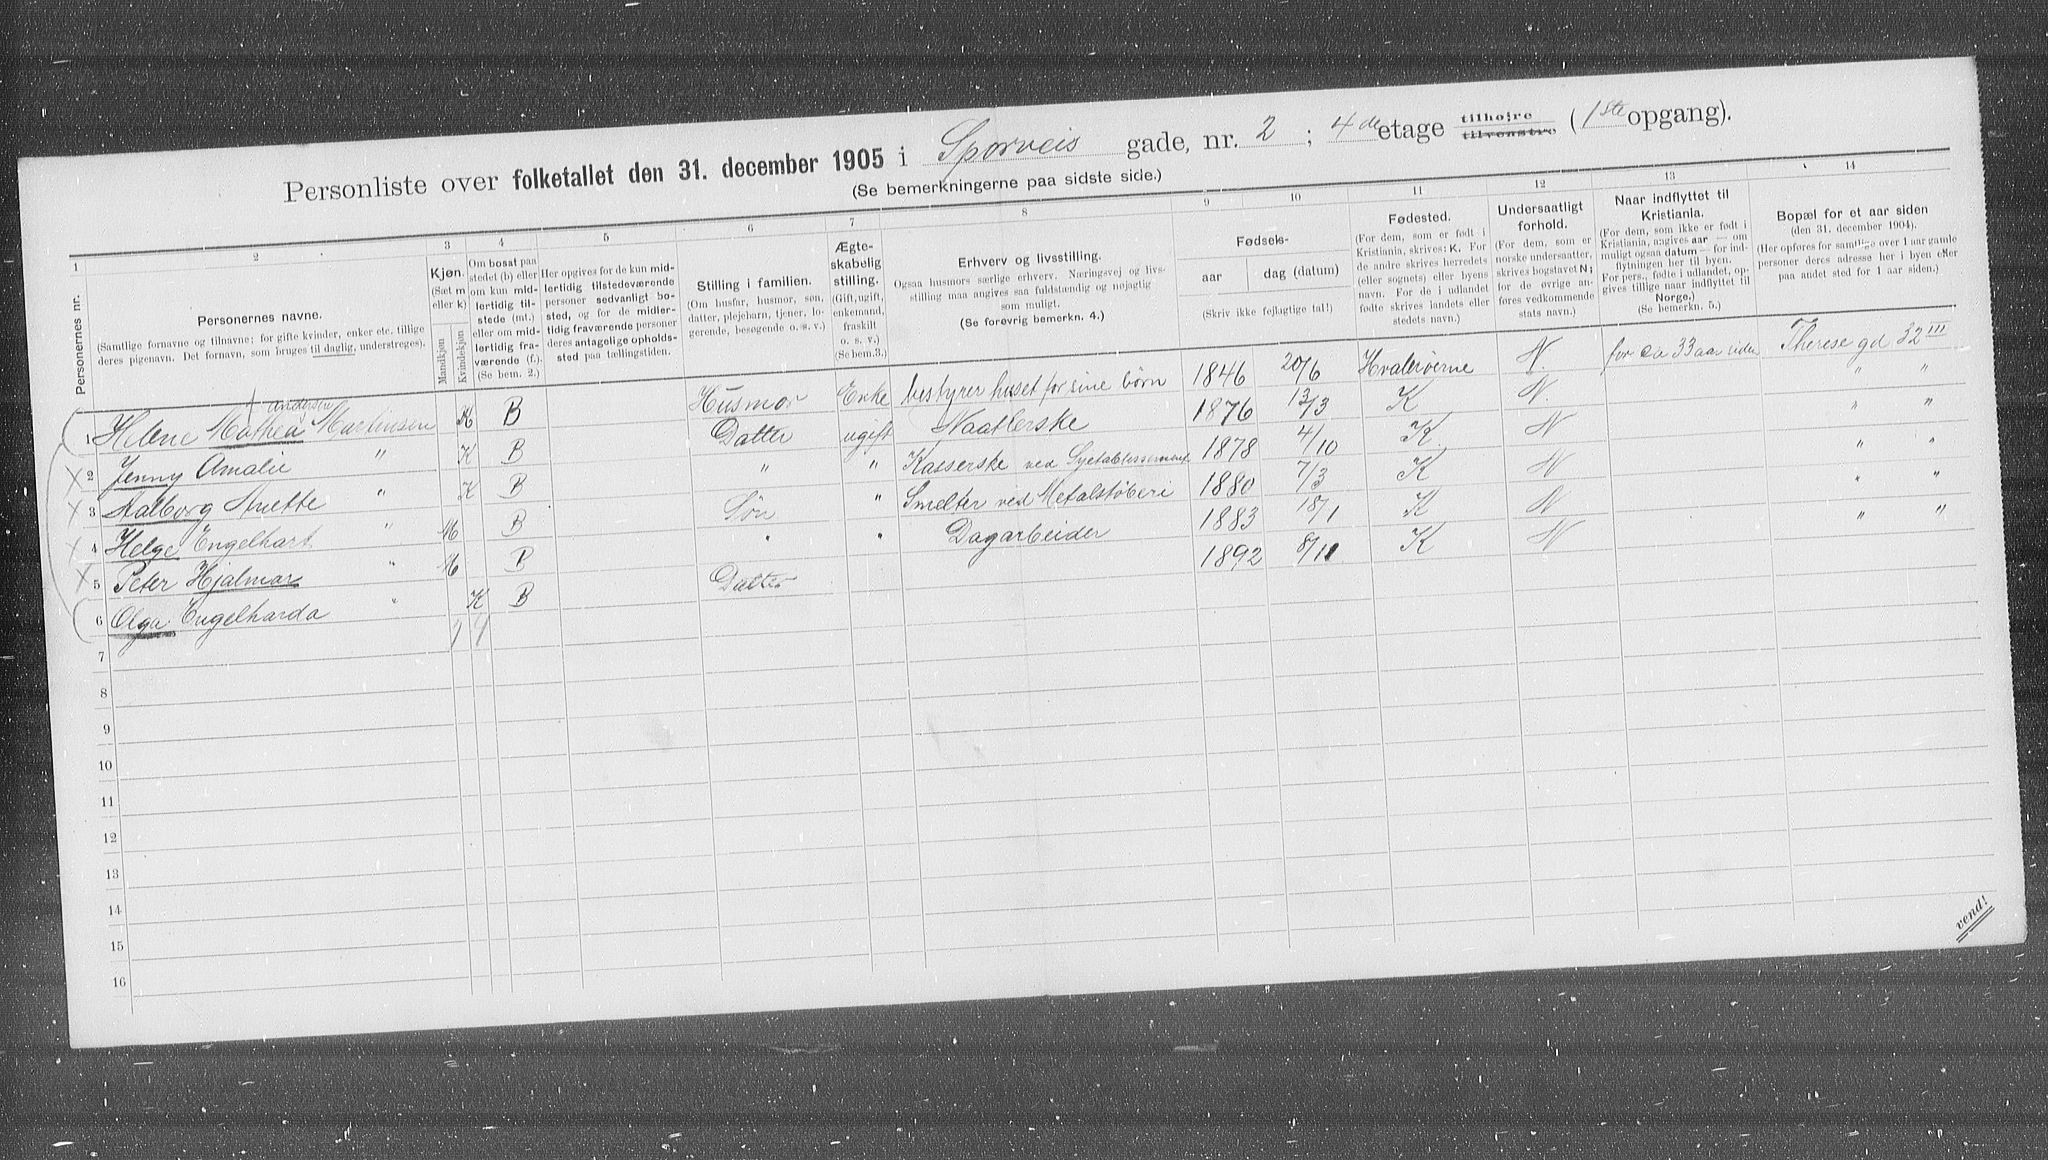 Personliste over folketallet den 31. december 1905 i Sporveis gade, nr. 2 ; 4de etage tilhøjre tilvenstre (1ste opgang).
(Se bemerkningerne paa sidste side.)
1 2 3 4 5 6 7 8 9 10 11 12 13 14
Personernes nr.
Personernes navne.
(Samtlige fornavne og tilnavne; for gifte kvinder, enker etc. tillige
deres pigenavn. Det fornavn, som bruges til daglig, understreges).
Kjøn.
(Sæt m
eller k)
Mandkjøn
Kvindekjøn
Om bosat paa
stedet (b) eller
om kun mid-
lertidig til-
stede (mt.)
eller om mid-
lertidig fra-
værende (f.)
(Se bem. 2.)
Her opgives for de kun mid-
lertidig tilstedeværende
personer sedvanligt bo-
sted, og for de midler-
tidig fraværende personer
deres antagelige opholds-
sted paa tællingstiden.
Stilling i familien.
(Om husfar, husmor, søn,
datter, plejebarn, tjener, lo-
gerende, besøgende o. s. v.)
Ægte-
skabelig
stilling.
(Gift, ugift,
enkemand,
fraskilt
o. s. v.)
(Se bem.3.)
Erhverv og livsstilling.
Ogsaa husmors særlige erhverv. Næringsvej og livs-
stilling maa angives saa fuldstændig og nøjagtig
som muligt.
(Se forøvrig bemerkn. 4.)
Fødsels-
aar dag (datum)
(Skriv ikke fejlagtige tal!)
Fødested.
(For dem, som er født i
Kristiania, skrives: K. For
de andre skrives herredets
(eller sognets) eller byens
navn. For de i udlandet
fødte skrives landets eller
stedets navn.)
Undersaatligt
forhold.
(For dem, som er
norske undersaatter,
skrives bogstavet N;
for de øvrige an-
føres vedkommende
stats navn.)
Naar indflyttet til
Kristiania.
(For dem, som ikke er født i
Kristiania, angives aar — om
muligt ogsaa datum — for ind-
flytningen her til byen.
For pers., fødte i udlandet, op-
gives tillige naar indflyttet til
Norge.)
(Se bemerkn. 5.)
Bopæl for et aar siden
(den 31. december 1904).
(Her opføres for samtlige over 1 aar gamle
personer deres adresse her i byen eller
paa andet sted for 1 aar siden.)
andersen
1 Helene Mathea Martinsen K B Husmor Enke bestyrer huset for sine børn 1846 20/6 Hvaløerne N. for ca 33 aar siden Therese gd 32 III
2 Jenny Amalie " K B Datter ugift Naatlerske 1876 13/3 K N. " "
3 Valborg Anette " K B " " Kasserske ved Syetablissement 1878 4/10 K N " "
4 Helge Engelhart " M B Søn " Smelter ved Metalstøberi 1880 7/3 K N " "
5 Peter Hjalmar " M B " " Dagarbeider 1883 18/1 K N " "
6 Olga Engelharda " K B Datter 1892 8/11 K N " "
7
8
9
10
11
12
13
14
15
16
vend!